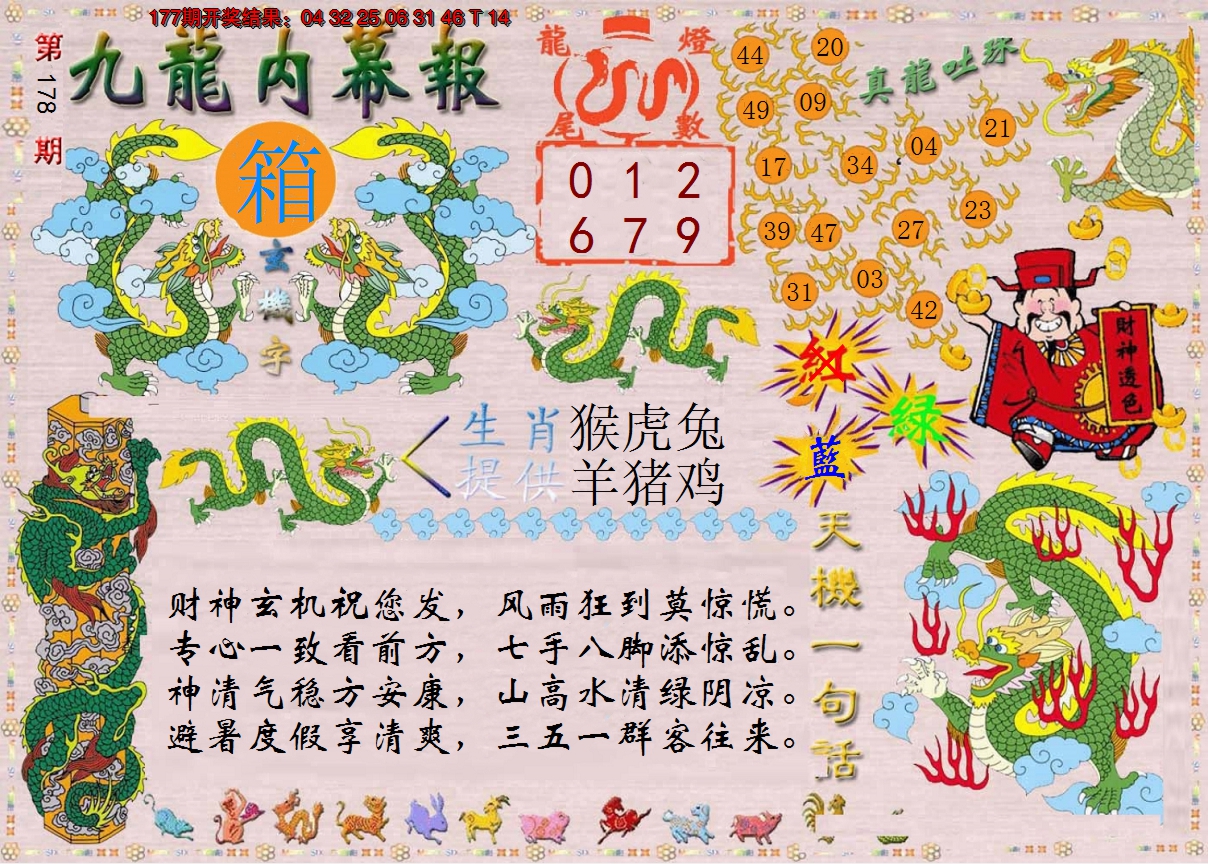 177期开奖结果：04 32 25.06 31 46 T 14
第178期
九龍内幕報
箱
玄機字
龍燈
尾數
0 1 2
6 7 9
真龍吐珠
44 20
49 09
17 34 04 21
39 47 27 23
31 03 42
財神透色
紅
綠
藍
生肖 猴虎兔
提供 羊猪鸡
天機一句話
财神玄机祝您发，风雨狂到莫惊慌。
专心一致看前方，七手八脚添惊乱。
神清气稳方安康，山高水清绿阴凉。
避暑度假享清爽，三五一群客往来。